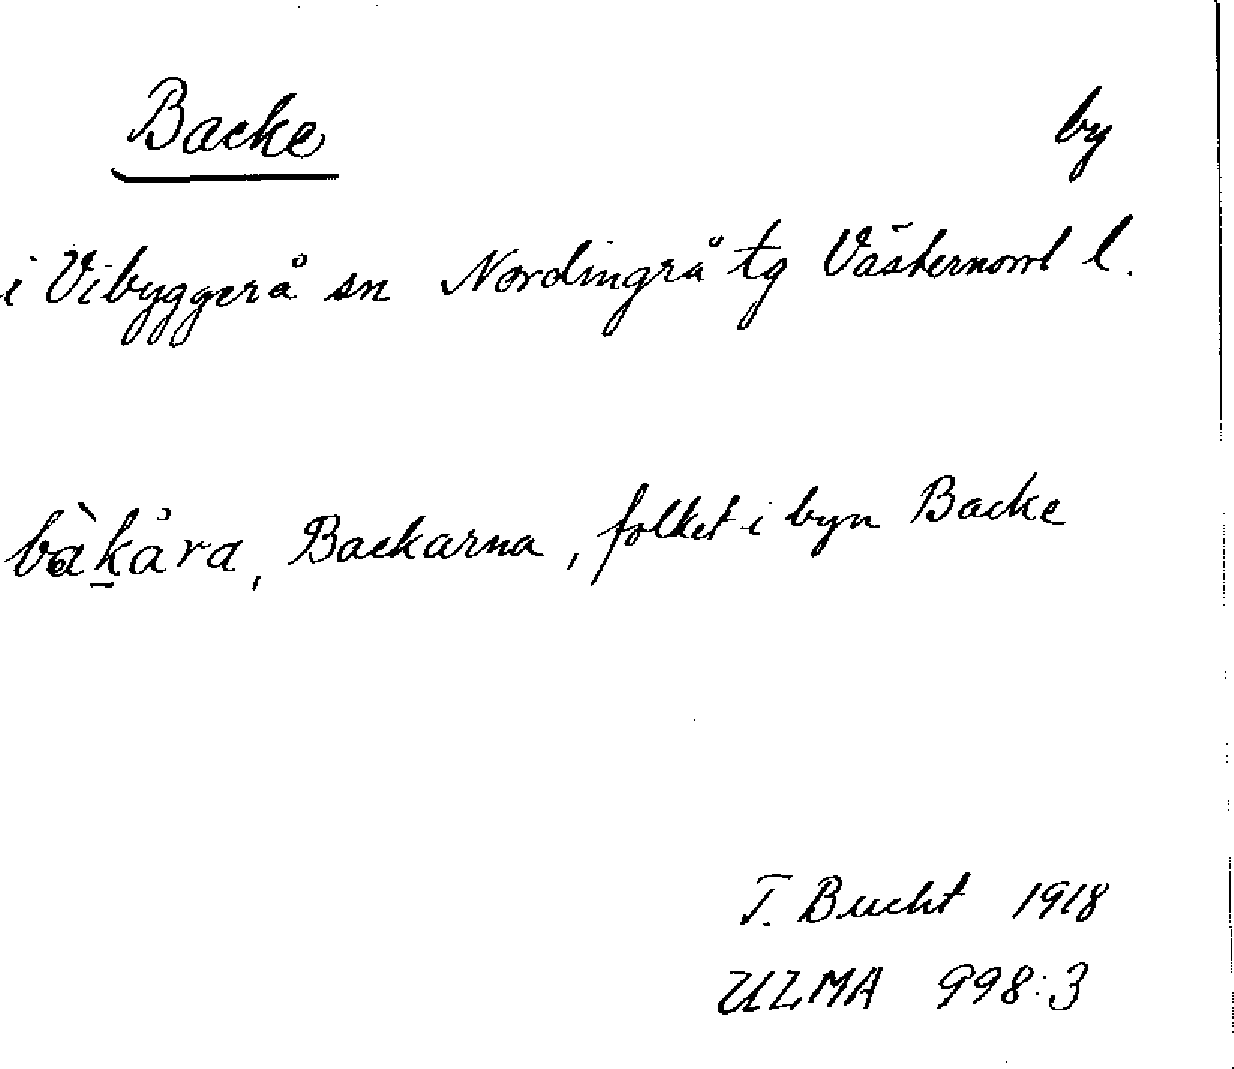 Backe by
i Vibyggerå sn Nordingrå tg Västernorrl l.
bàkåra, Backarna, folket i byn Backe
T. Bucht 1918
ULMA 998:3